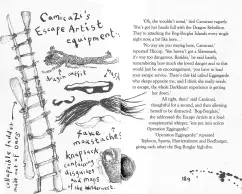 CAMICAZI'S
Escape Artist
equipment:
wig
fake
moustache!
knapsack
containing
disguises
and maps
of the
collapsible ladder
made out of oars
'Oh, she wouldn't mind,' said Camicazi vaguely.
'She's got her hands full with the Dragon Rebellion.
They're attacking the Bog-Burglar Islands every single
night now, a lot like here…'
'No way are you staying here, Camicazi,'
repeated Hiccup. 'You haven't got a Slavemark,
it's way too dangerous. Besides,' he said hastily,
remembering how much she loved danger and so this
would just be an encouragement, 'you have to lead
your escape service. There's this kid called Eggingarde
who sleeps opposite me, and I think she really needs
to escape, the whole Darkheart experience is getting
her down.'
'All right, then!' said Camicazi,
thoughtful for a second, and then allowing
herself to be distracted. 'Bog-Burglars,'
she addressed the Escape Artists in a loud
conspiratorial whisper, 'we put into action
Operation Eggingarde!'
'Operation Eggingarde!' repeated
Typhoon, Sparta, Hurricanehross and Beefburger,
giving each other the Bog-Burglar high-five.
189